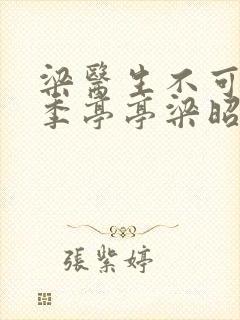 梁醫生不可
季亭亭梁昭
張紫婷